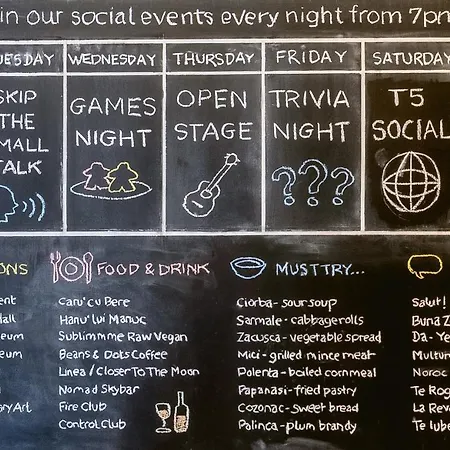 in our social events every night from 7pm
UESDAY
WEDNESDAY
THURSDAY
FRIDAY
SATURDAY
SKIP
THE
SMALL
TALK
GAMES
NIGHT
OPEN
STAGE
TRIVIA
NIGHT
T5
SOCIAL
ONS
ent
Hall
eum
eum
ary Art
FOOD & DRINK
Caru' cu Bere
Hanu' lui Manuc
Sublimme Raw Vegan
Beans & Dots Coffee
Linea / Closer To The Moon
Nomad Skybar
Fire Club
Control Club
MUST TRY...
Ciorba - sour soup
Sarmale - cabbage rolls
Zacusca - vegetable spread
Mici - grilled mince meat
Polenta - boiled cornmeal
Papanasi - fried pastry
Cozonac - sweet bread
Palinca - plum brandy
Salut!
Buna Z
Da - Ye
Multum
Noroc
Te Rog
La Reve
Te Iube